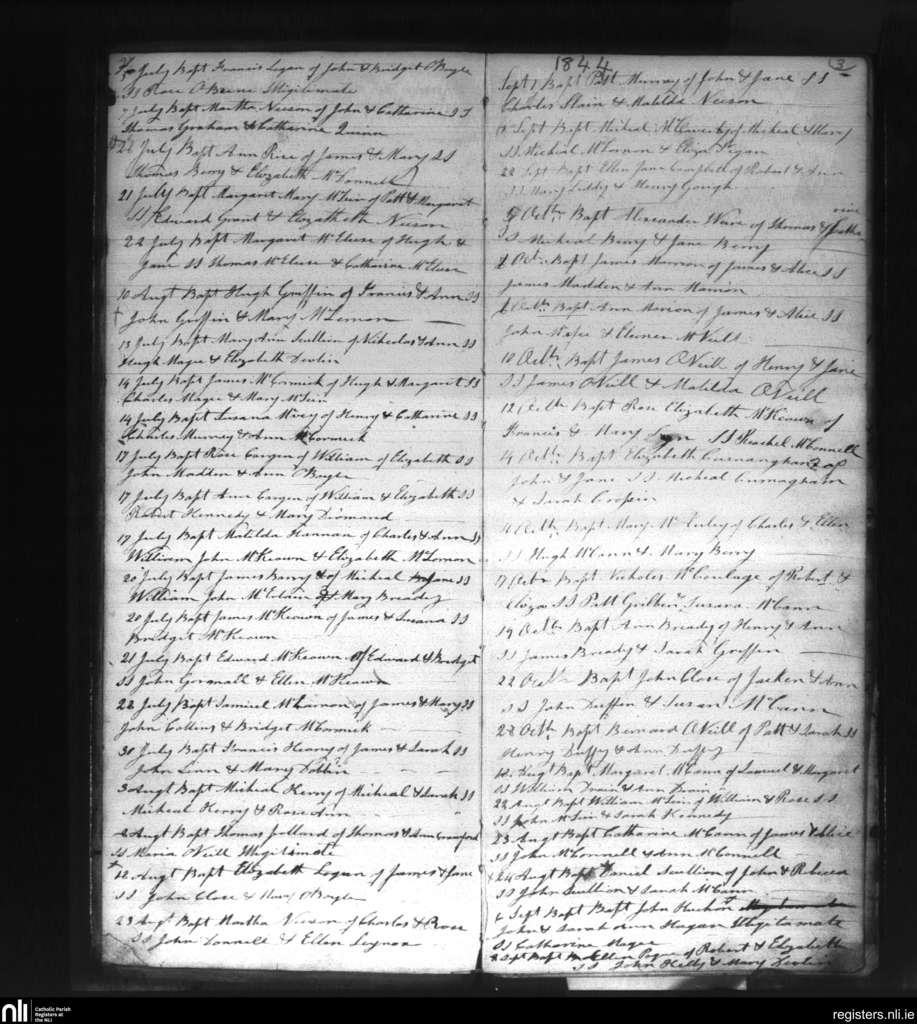 July Bapt Francis Logan of John & Bridget O'Boyle
SS Rose O'Brine Illigitimate
7 July Bapt Martha Neeson of John & Catharine SS
Thomas Graham & Catharine Quinn
22 July Bapt Ann Rice of James & Mary SS
Thomas Berry & Elizabeth McConnell
21 July Bapt Margaret Mary of Patt & Margaret
SS Edward Grant & Elizabeth Neeson
22 July Bapt Margaret McElese of Hugh &
Jane SS Thomas McElese & Catharine McElese
10 Augt Bapt Hugh Griffin of Francis & Ann SS
John Griffin & Mary McLernon
13 July Bapt Mary Ann Scullion of Nicholas & Ann SS
Hugh Magee & Elizabeth Devlin
14 July Bapt James McCormick of Hugh & Margaret SS
Charles Magee & Mary
14 July Bapt Susana of Henry & Catharine SS
Charles Murray & Ann McCormick
17 July Bapt Rose Cargen of William of Elizabeth SS
John Madden & Ann O'Boyle
17 July Bapt Ann Cargen of William & Elizabeth SS
Robert Kennedy & Mary Diamond
17 July Bapt Matilda Hannan of Charles & Ann SS
William John McKeown & Elizabeth McLernon
20 July Bapt James Barry of Micheal & Jane SS
William John & Mary Breadey
20 July Bapt James McKeown of James & Susana SS
Bridget McKeown
21 July Bapt Edward McKeown of Edward & Bridget
SS John Gormall & Ellen McKeown
22 July Bapt Samiel of James & Mary SS
John Collins & Bridget McCormick
30 July Bapt Francis Heany of James & Sarah SS
John Linn & Mary Dobbin
3 Augt Bapt Micheal Henry of Micheal & Sarah SS
Micheal Henry & Rose Ann
Augt Bapt Thomas Jollard of Thomas & Ann Crawford
SS Maria O'Neill Illigitimate
12 Augt Bapt Elizabeth Logan of James & Jane
SS John Close & Mary O'Boyle
23 Augt Bapt Martha Neeson of Charles & Rose
SS John Connell & Ellen
1844
3
Sept 1 Bapt Patt Murray of John & Jane SS
Charles Slain & Matilda Neeson
Sept Bapt Micheal McClaverty of Micheal & Mary
SS Micheal & Eliza
22 Sept Bapt Ellen Jane Campbell of Robert & Ann
SS Mary Liddy & Henry Gough
Octbr Bapt Alexander Weire of Thomas & Catha
rine
SS Micheal Berry & Jane Berry
Octr Bapt James of James & Alice SS
James Madden & Ann
Octbr Bapt Ann of James & Alice SS
John & Elenor McNeill
10 Octbr Bapt James O'Neill of Henry & Jane
SS James O'Neill & Matilda O'Neill
12 Octbr Bapt Rose Elizabeth McKeown of
Francis & Mary SS Reachel McConnell
14 Octbr Bapt Elizabeth Curnangham of
John & Jane SS Micheal Curnagham
& Sarah
Octbr Bapt Mary of Charles & Ellen
SS Hugh McCann & Mary Berry
17 Octbr Bapt Nicholes of Robert &
Eliza SS Patt Susana McCann
19 Octbr Bapt Ann Bready of Henry & Ann
SS James Bready & Sarah Griffin
22 Octbr Bapt John Close of Jackson & Ann
SS John Duffin & Susan McCann
28 Octbr Bapt Bernard O'Neill of Patt & Sarah SS
Henry Duffy & Ann Duffy
12 Augt Bapt Margaret McCann of Samuel & Margaret
SS William Drain & Ann Drain
22 Augt Bapt William of William & Rose SS
SS John & Sarah Kennedy
23 Augt Bapt Catharine McCann of James & Alice
SS John McConnell & Ann McConnell
24 Augt Bapt Daniel Scullion of John & Rebecca
SS John Scullion & Sarah McCann
6 Sept Bapt Bapt John
John & Sarah Ann Hagan Illigitamate
SS Catharine Magee
Sept Bapt Ellen of Robert & Elizabeth
SS John Kelly & Mary Devlin
nli
Catholic Parish
Registers at
the NLI
registers.nli.ie